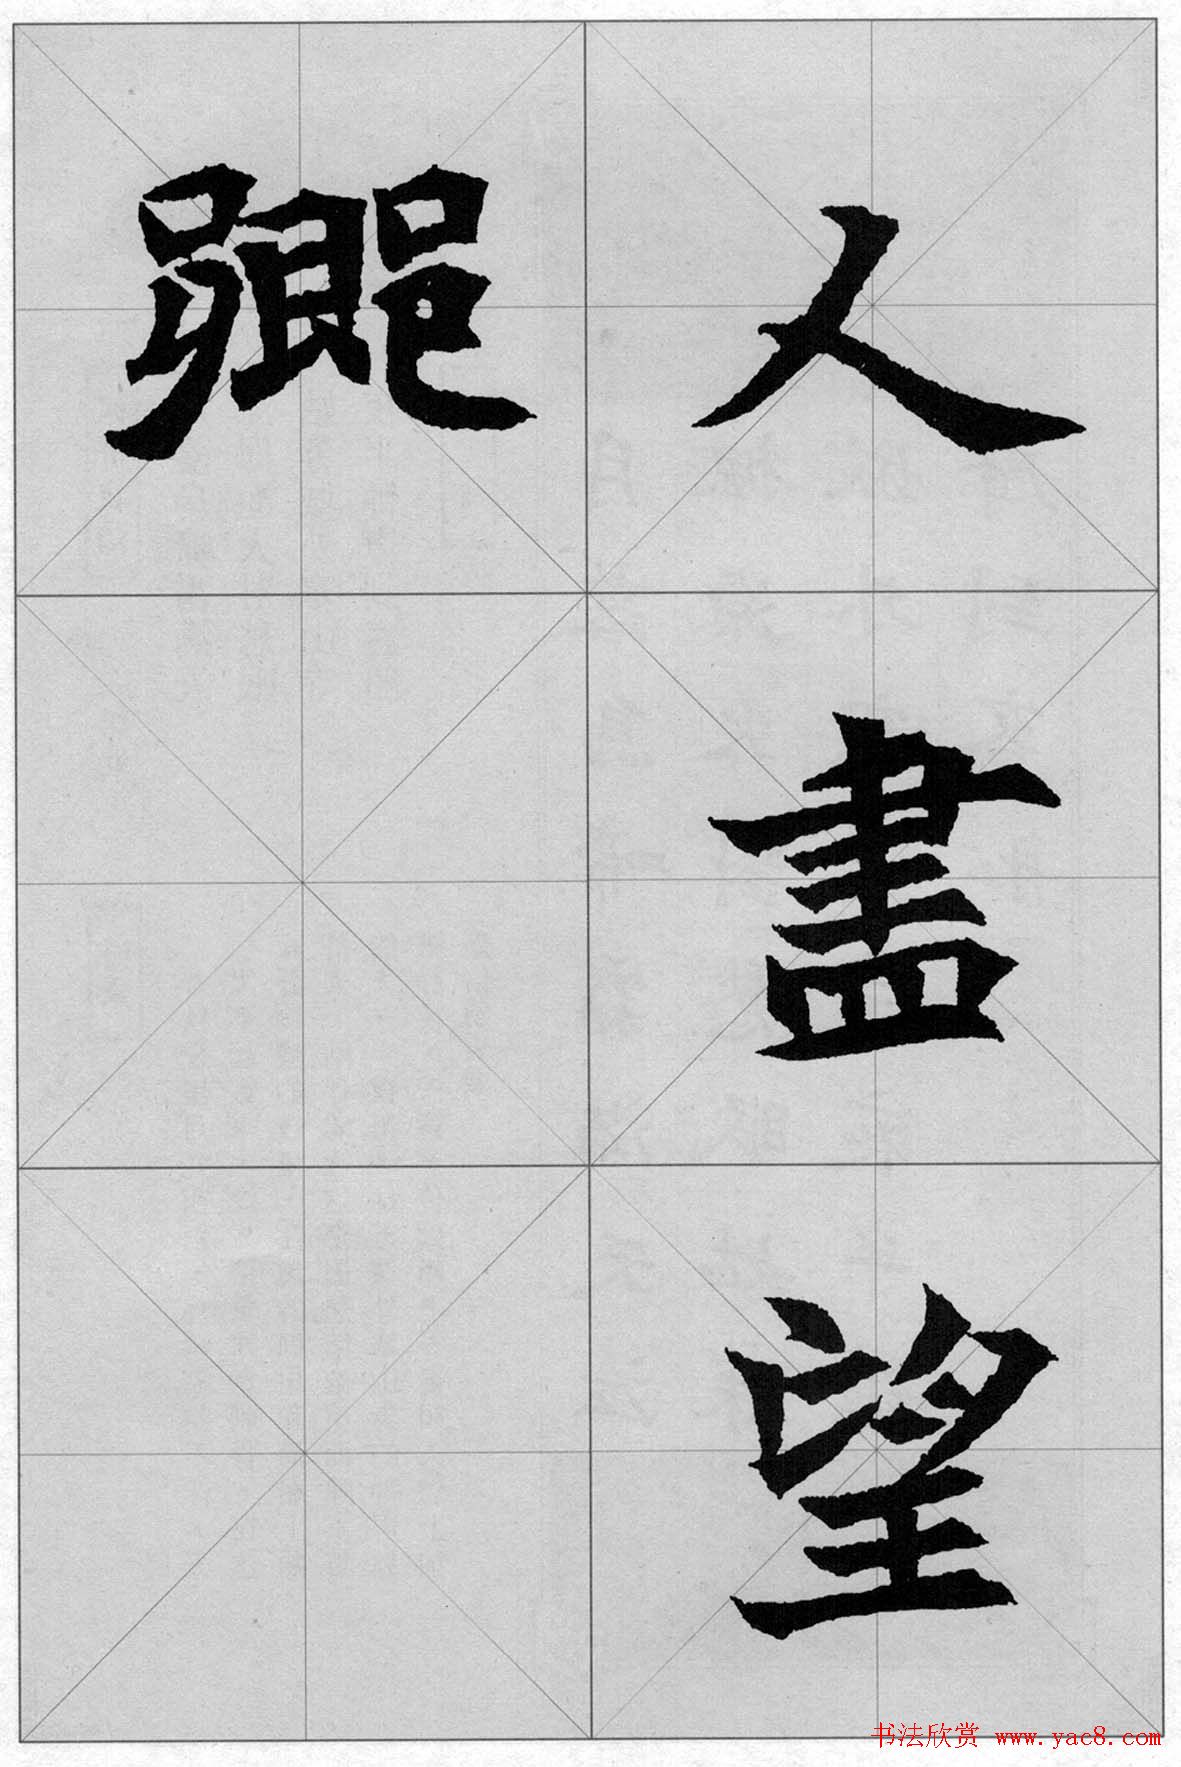 人盡望
鄉
书法欣赏 www.yac8.com